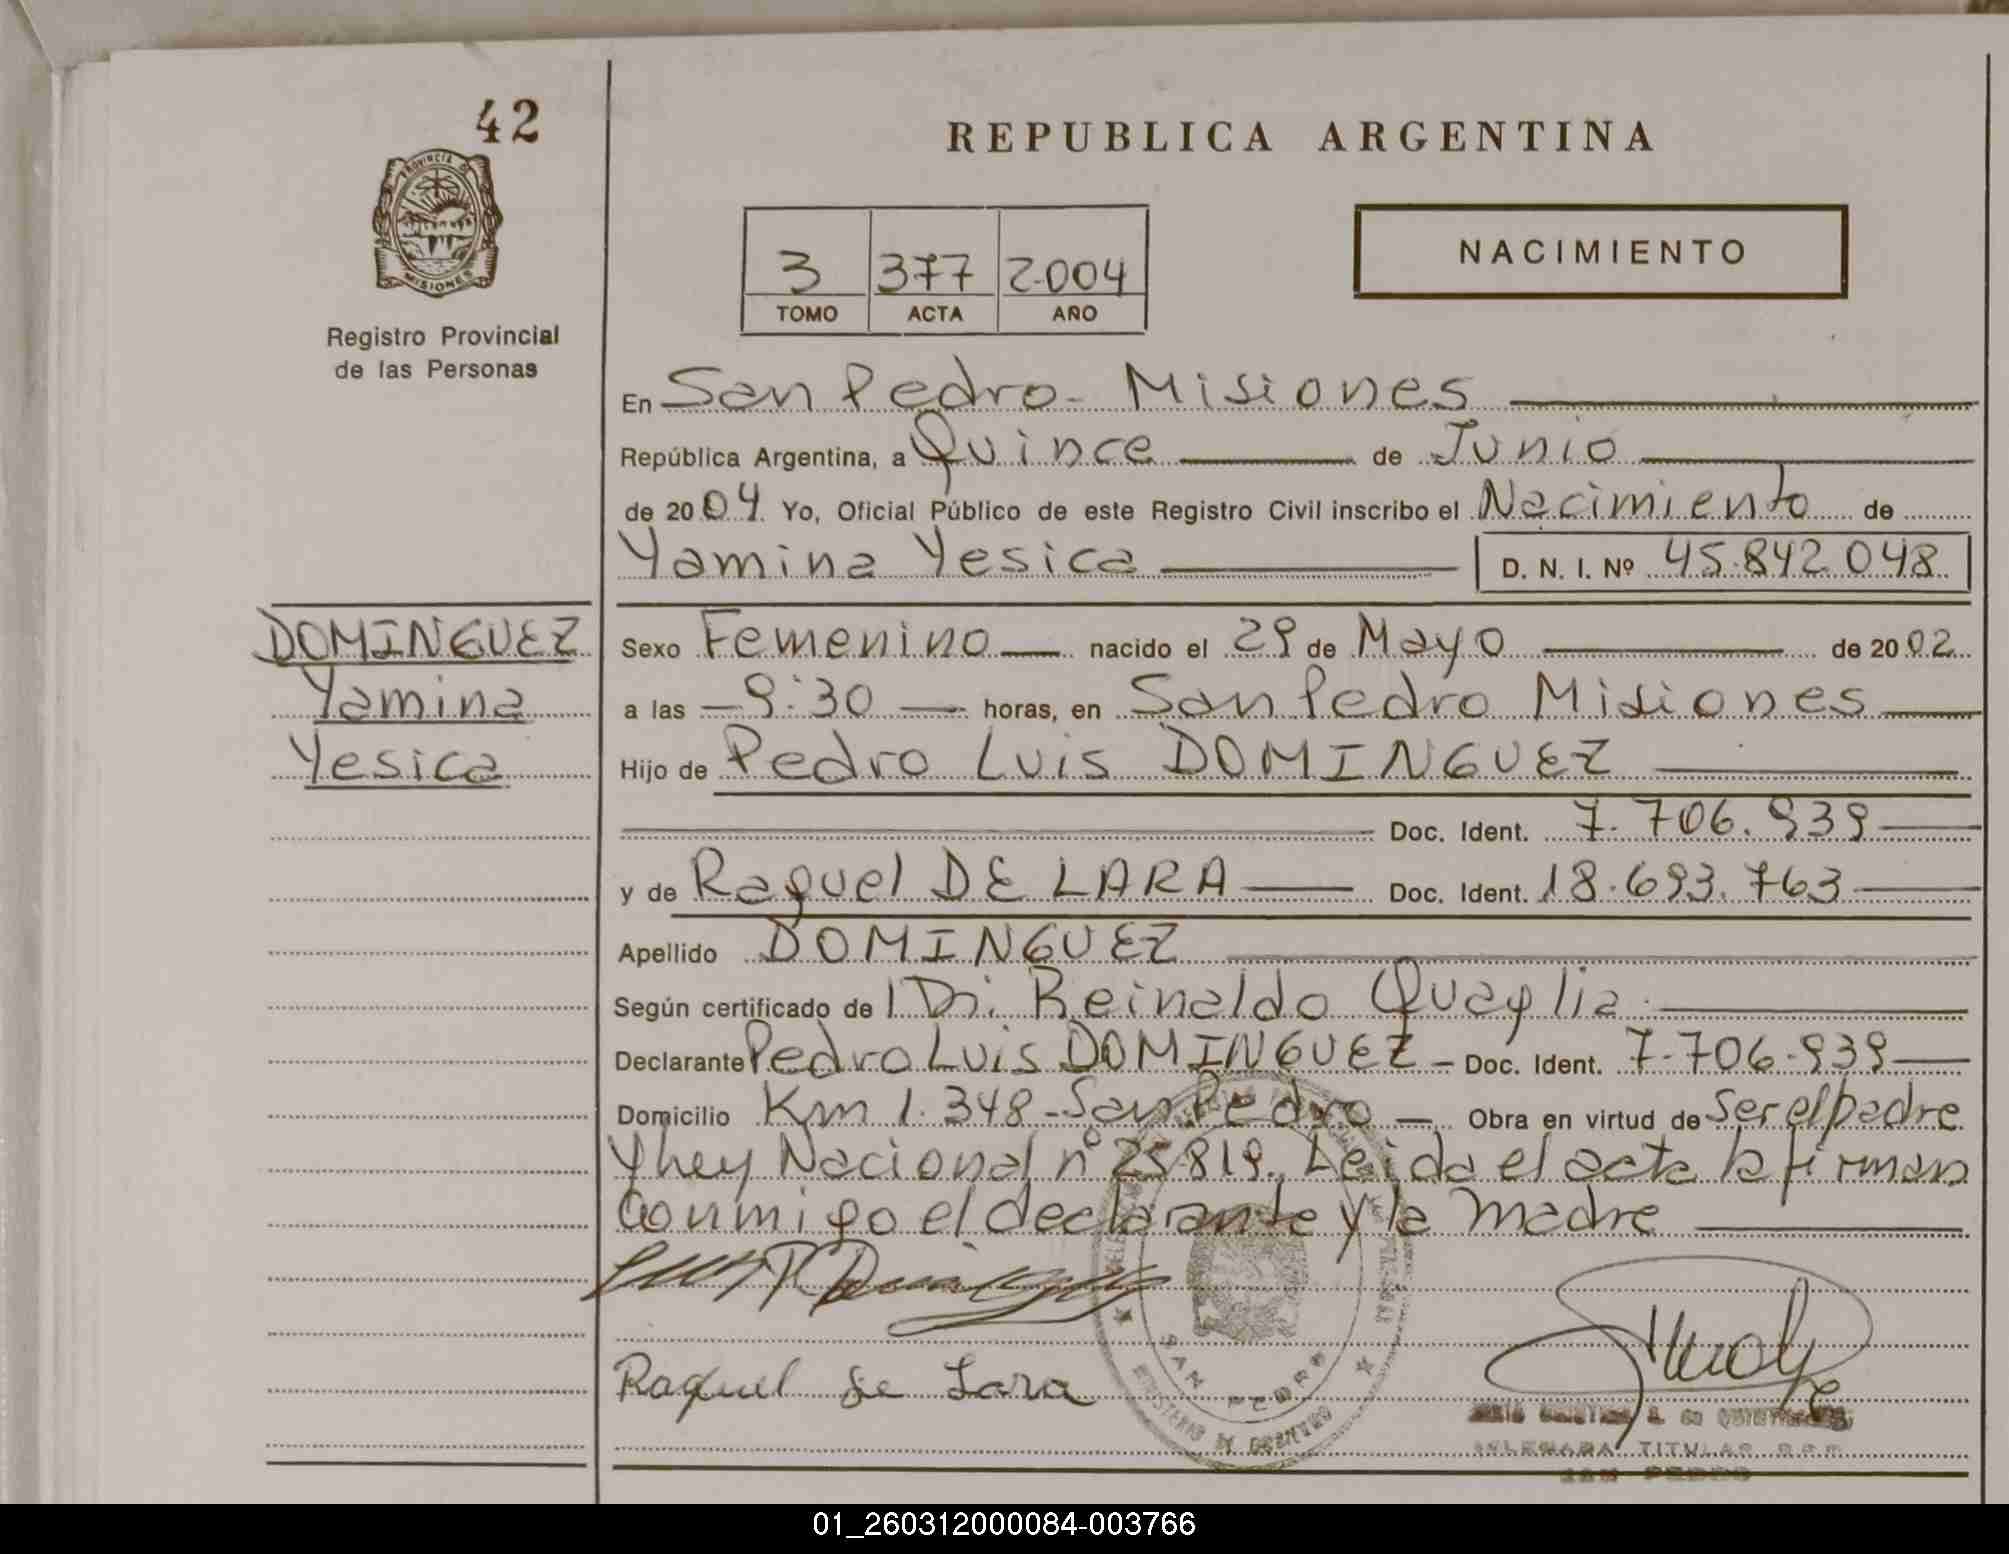 42
PROVINCIA DE
MISIONES
Registro Provincial
de las Personas
REPUBLICA ARGENTINA
3 377 2.004
TOMO ACTA AÑO
NACIMIENTO
En San Pedro - Misiones
República Argentina, a Quince de Junio
de 2004 Yo, Oficial Público de este Registro Civil inscribo el Nacimiento de
Yamina Yesica D. N. I. Nº 45.842.048
DOMINGUEZ
Yamina
Yesica
Sexo Femenino nacido el 29 de Mayo de 2002
a las 9:30 horas, en San Pedro Misiones
Hijo de Pedro Luis DOMINGUEZ
Doc. Ident. 7.706.939
y de Raquel DE LARA Doc. Ident. 18.693.763
Apellido DOMINGUEZ
Según certificado de Reinaldo Quaglia
Declarante Pedro Luis DOMINGUEZ - Doc. Ident. 7.706.939
Domicilio Km 1.348 - San Pedro - Obra en virtud de Ser el padre
y ley Nacional nº 25.819. Leida el acta la firman
Conmigo el declarante y la madre
Raquel de Lara
SAN PEDRO
DELEGADA TITULAR
SAN PEDRO
01_260312000084-003766